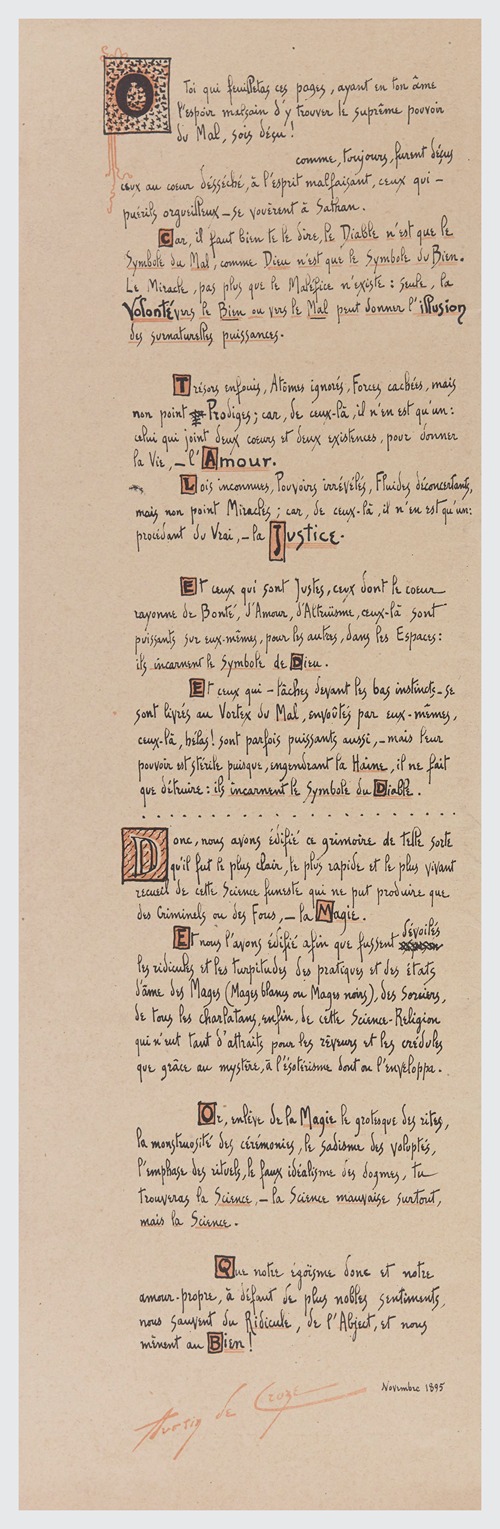 O Toi qui feuilletas ces pages, ayant en ton âme
l'espoir malsain d'y trouver le suprême pouvoir
du Mal, sois déçu!
comme, toujours, furent déçus
ceux au coeur désséché, à l'esprit malfaisant, ceux qui –
puérils orgueilleux – se vouèrent à Sathan.
Car, il faut bien te le dire, le Diable n'est que le
Symbole du Mal, comme Dieu n'est que le Symbole du Bien.
Le Miracle, pas plus que le Maléfice n'existe : seule, la
Volonté vers le Bien ou vers le Mal peut donner l'illusion
des surnaturelles puissances.
Trésors enfouis, Atômes ignorés, Forces cachées, mais
non point Prodiges; car, de ceux-là, il n'en est qu'un :
celui qui joint deux coeurs et deux existences, pour donner
la Vie, – l'Amour.
Lois inconnues, Pouvoirs irrévélés, Fluides déconcertants,
mais non point Miracles ; car, de ceux-là, il n'en est qu'un :
procédant du Vrai, – la Justice.
Et ceux qui sont Justes, ceux dont le coeur
rayonne de Bonté, d'Amour, d'Altruïsme, ceux-là sont
puissants sur eux-mêmes, pour les autres, dans les Espaces :
ils incarnent le Symbole de Dieu.
Et ceux qui – lâches devant les bas instincts – se
sont livrés au Vortex du Mal, envoûtés par eux-mêmes,
ceux-là, hélas! sont parfois puissants aussi, – mais leur
pouvoir est stérile puisque, engendrant la Haine, il ne fait
que détruire : ils incarnent le Symbole du Diable.
Donc, nous avons édifié ce grimoire de telle sorte
qu'il fut le plus clair, le plus rapide et le plus vivant
recueil de cette Science funeste qui ne put produire que
des Criminels ou des Fous, – la Magie.
Et nous l'avons édifié afin que fussent dévoilés
les ridicules et les turpitudes des pratiques et des états
d'âme des Mages (Mages blancs ou Mages noirs), des Sorciers,
de tous les charlatans, enfin, de cette Science-Religion
qui n'eut tant d'attraits pour les rêveurs et les crédules
que grâce au mystère, à l'ésotérisme dont on l'enveloppa.
Or, enlève de la Magie le grotesque des rites,
la monstruosité des cérémonies, le sadisme des voluptés,
l'emphase des rituels, le faux idéalisme des dogmes, tu
trouveras la Science, – la Science mauvaise surtout,
mais la Science.
Que notre égoïsme donc et notre
amour-propre, à défaut de plus nobles sentiments,
nous sauvent du Ridicule, de l'Abject, et nous
mènent au Bien!
Novembre 1895
Austin de Croze